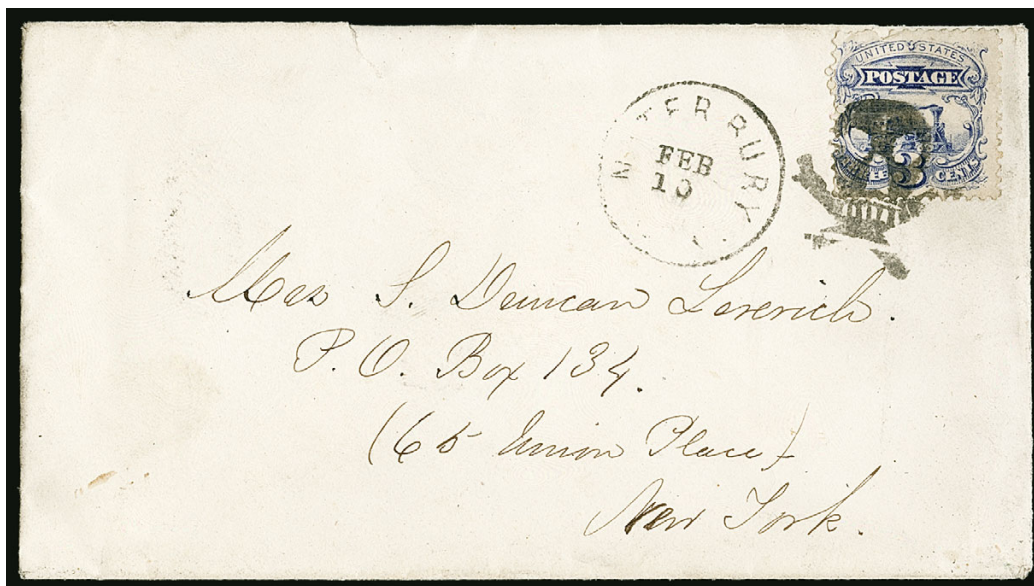 UNITED STATES
POSTAGE
3
CENTS
FEB
10
Mrs S. Duncan Leverich.
P. O. Box 134.
(65 Union Place)
New York.